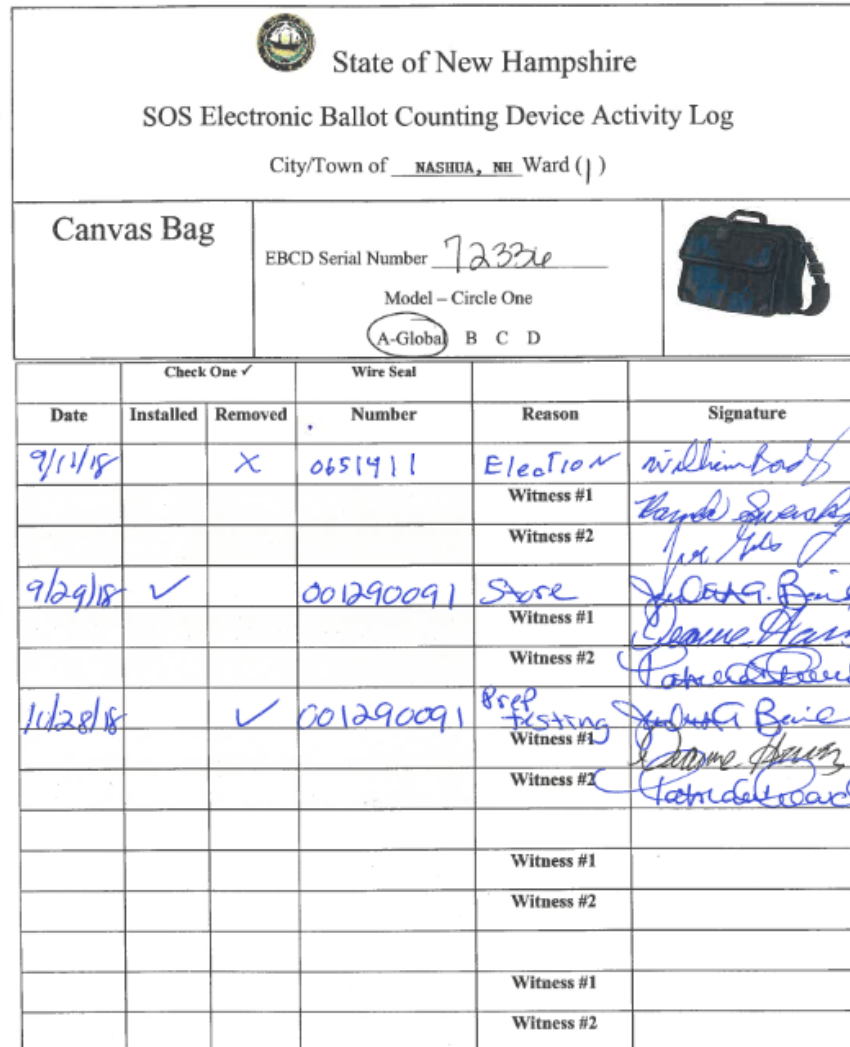 State of New Hampshire
SOS Electronic Ballot Counting Device Activity Log
City/Town of NASHUA, NH Ward (1)
Canvas Bag
EBCD Serial Number 72336
Model – Circle One
A-Global B C D
Check One ✓ Wire Seal
Date Installed Removed Number Reason Signature
9/11/18 X 0651411 Election William
Witness #1
Witness #2
9/29/18 ✓ 001290091 Store
Witness #1 Deanne
Witness #2
✓ 001290091 Prep
testing
Witness #1 Deanne
Witness #2
Witness #1
Witness #2
Witness #1
Witness #2